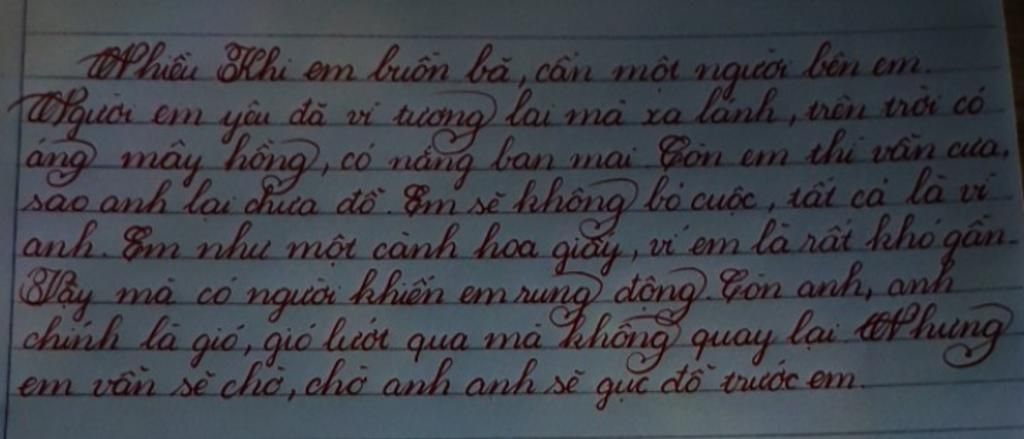 Nhiều Khi em buồn bã, cần một người bên em.
Người em yêu đã vì tương lai mà xa lánh, trên trời có
áng mây hồng, có nắng ban mai Còn em thì vẫn cưa,
sao anh lại chưa đổ. Em sẽ không bỏ cuộc, tất cả là vì
anh. Em như một cành hoa giấy, vì em là rất khó gần.
Vậy mà có người khiến em rung động. Còn anh, anh
chính là gió, gió lướt qua mà không quay lại Nhưng
em vẫn sẽ chờ, chờ anh anh sẽ gục đổ trước em.